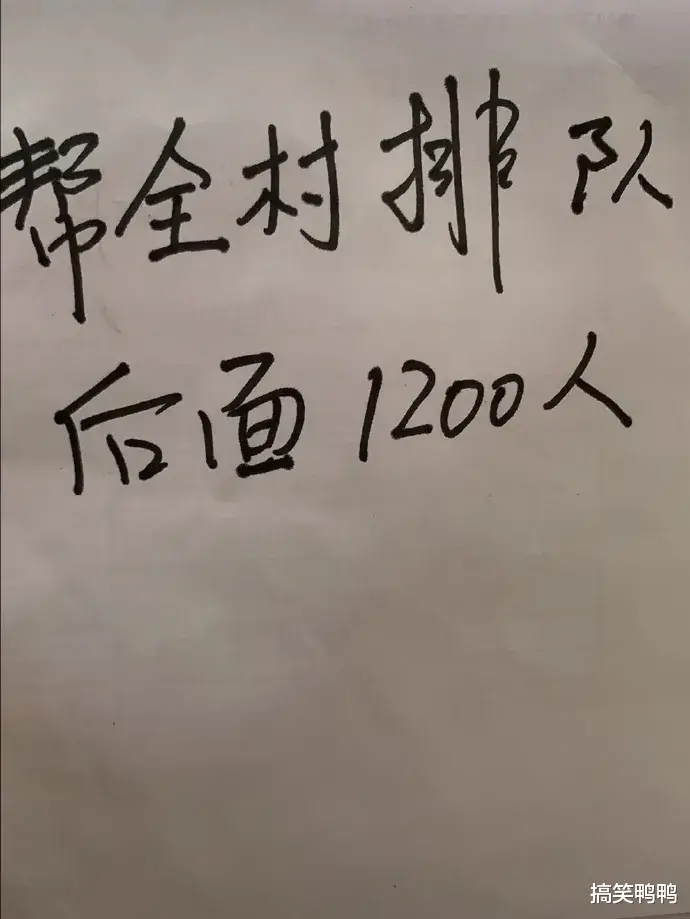 帮全村排队
后面1200人
搞笑鸭鸭